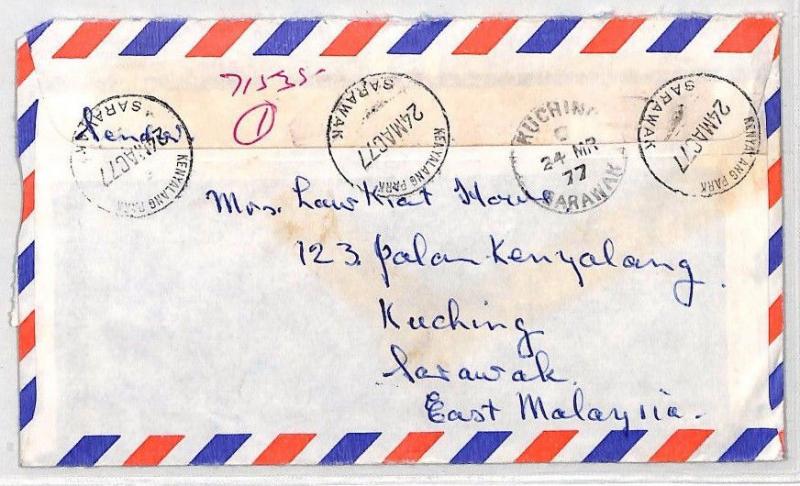 71535
1
Sender
KENYALANG PARK
24MAC77
SARAWAK
KENYALANG PARK
24MAC77
SARAWAK
KUCHING
C
24 MR
77
SARAWAK
KENYALANG PARK
24MAC77
SARAWAK
Mrs. Law Kiat
123 Jalan Kenyalang
Kuching
Sarawak.
East Malaysia.